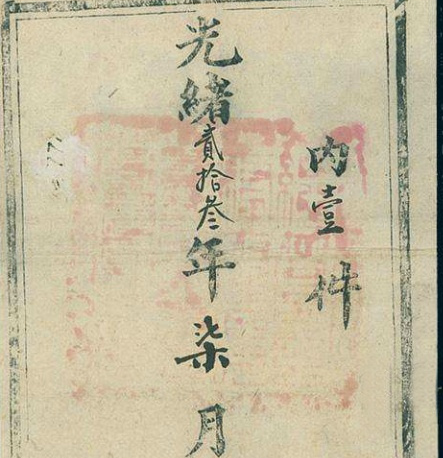 内壹件
光緒貳拾叁年柒月